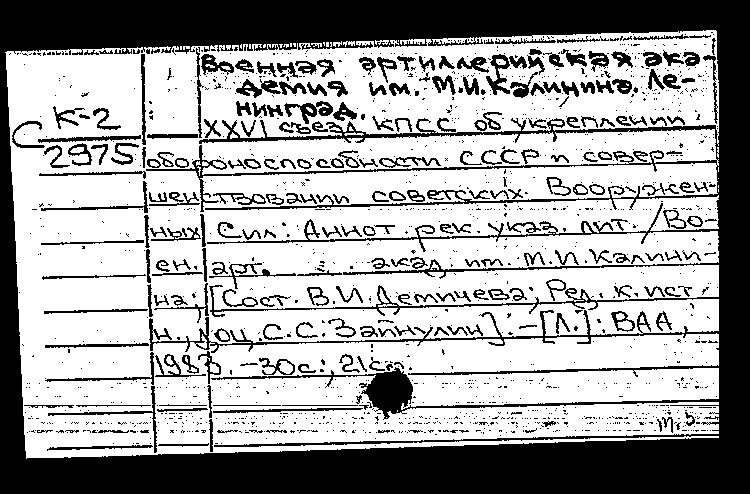 Военная артиллерийская ака-
демия им. М.И.Калинина. Ле-
нинград.
К-2
2975
XXVI съезд КПСС об укреплении
обороноспособности СССР и совер-
шенствовании советских Вооружен-
ных Сил: Аннот. рек. указ. лит. / Во-
ен. арт. акад. им. М.И.Калини-
на; [Сост. В.И.Демичева; Ред. к. ист.
н., доц. С.С. Зайнулин]. - [Л.]: ВАА,
1983. - 30с.; 21с